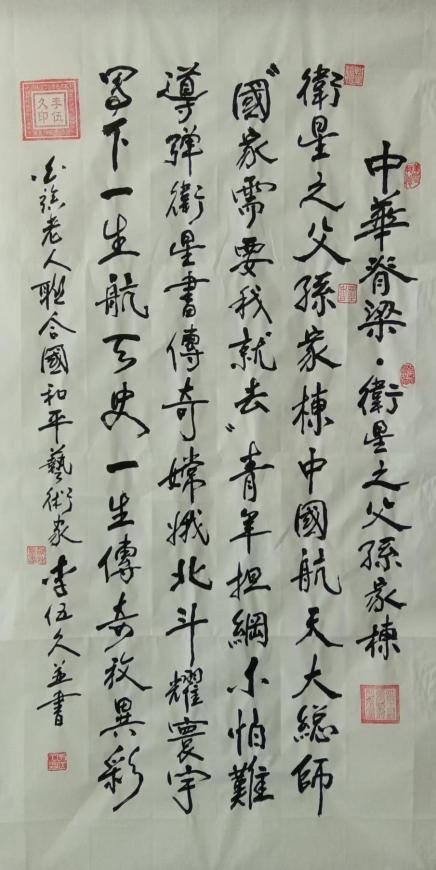 中華脊梁·衛星之父孫家棟
衛星之父孫家棟中國航天大總師
"國家需要我就去"青年担綱不怕難
導彈衛星書傳奇嫦娥北斗耀寰宇
写下一生航天史一生傳奇放異彩
白族老人聯合國和平藝術家李伍久並書
李伍久印